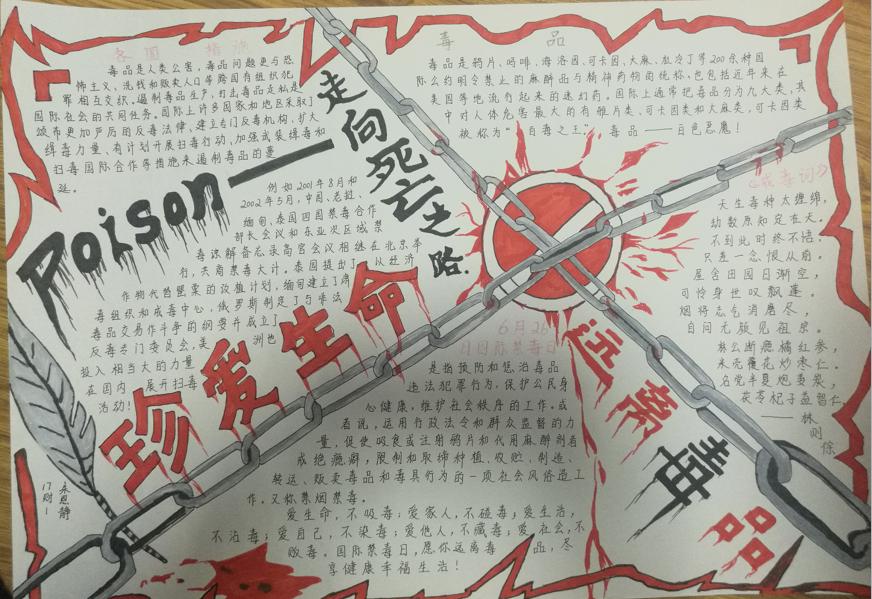 各国 措施
毒品是人类公害,毒品问题更与恐
怖主义、洗钱和贩卖人口等跨国有组织犯
罪相互交织。遏制毒品生产,打击毒品走私是
国际社会的共同任务。国际上许多国家和地区采取了
颁布更加严厉的反毒法律、建立专门反毒机构、扩大
缉毒力量、有计划开展扫毒行动,加强武装缉毒和
扫毒国际合作等措施来遏制毒品的蔓
延。
例如2001年8月和
2002年5月,中国、老挝、
缅甸、泰国四国禁毒合作
部长会议和东亚次区域禁
毒谅解备忘录高官会议相继在北京举
行,共商禁毒大计。泰国提出了 以经济
作物代替罂粟的改植计划,缅甸建立了肃
毒组织和戒毒中心,俄罗斯制定了与非法
毒品交易作斗争的纲要并成立了
反毒专门委员会,美 洲也
投入相当大的力量
在国内 展开扫毒
活动!
Poison——
走向死亡之路.
珍爱生命
毒 品
毒品是鸦片、吗啡、海洛因、可卡因、大麻、冰冷丁等200余种国
际公约明令禁止的麻醉品与精神药物的统称,也包括近年来在
美国等地流行起来的迷幻药。国际上通常把毒品分为九大类,其
中对人体危害最大的有鸦片类、可卡因类和大麻类,可卡因类
被称为“百毒之王” 毒品——白色恶魔!
《戒毒词》
天生毒种太缠绵,
劫数原知定在天。
不到此时终不悟,
只差一念恨从前。
屋舍田园日渐空,
可怜身世叹飘蓬。
烟将志气消磨尽,
自问无颜见祖宗。
林公断瘾橘红参,
米壳覆花炒枣仁。
名党半夏炮姜炭,
茯苓杞子益智仁。
——林
则
徐
远离毒品
6月26
日国际禁毒日
是指预防和惩治毒品
违法犯罪行为,保护公民身
心健康,维护社会秩序的工作。或
者说,运用行政法令和群众监督的力
量,促使吸食或注射鸦片和代用麻醉剂者
戒绝瘾癖,限制和取缔种植、收贮、制造、
转运、贩卖毒品和毒具行为的一项社会风俗造工
作。又称禁烟禁毒。
爱生命,不吸毒;爱家人,不碰毒;爱生活,
不沾毒;爱自己,不染毒;爱他人,不藏毒;爱社会,不
贩毒。国际禁毒日,愿你远离毒 品,尽
享健康幸福生活!
17财1